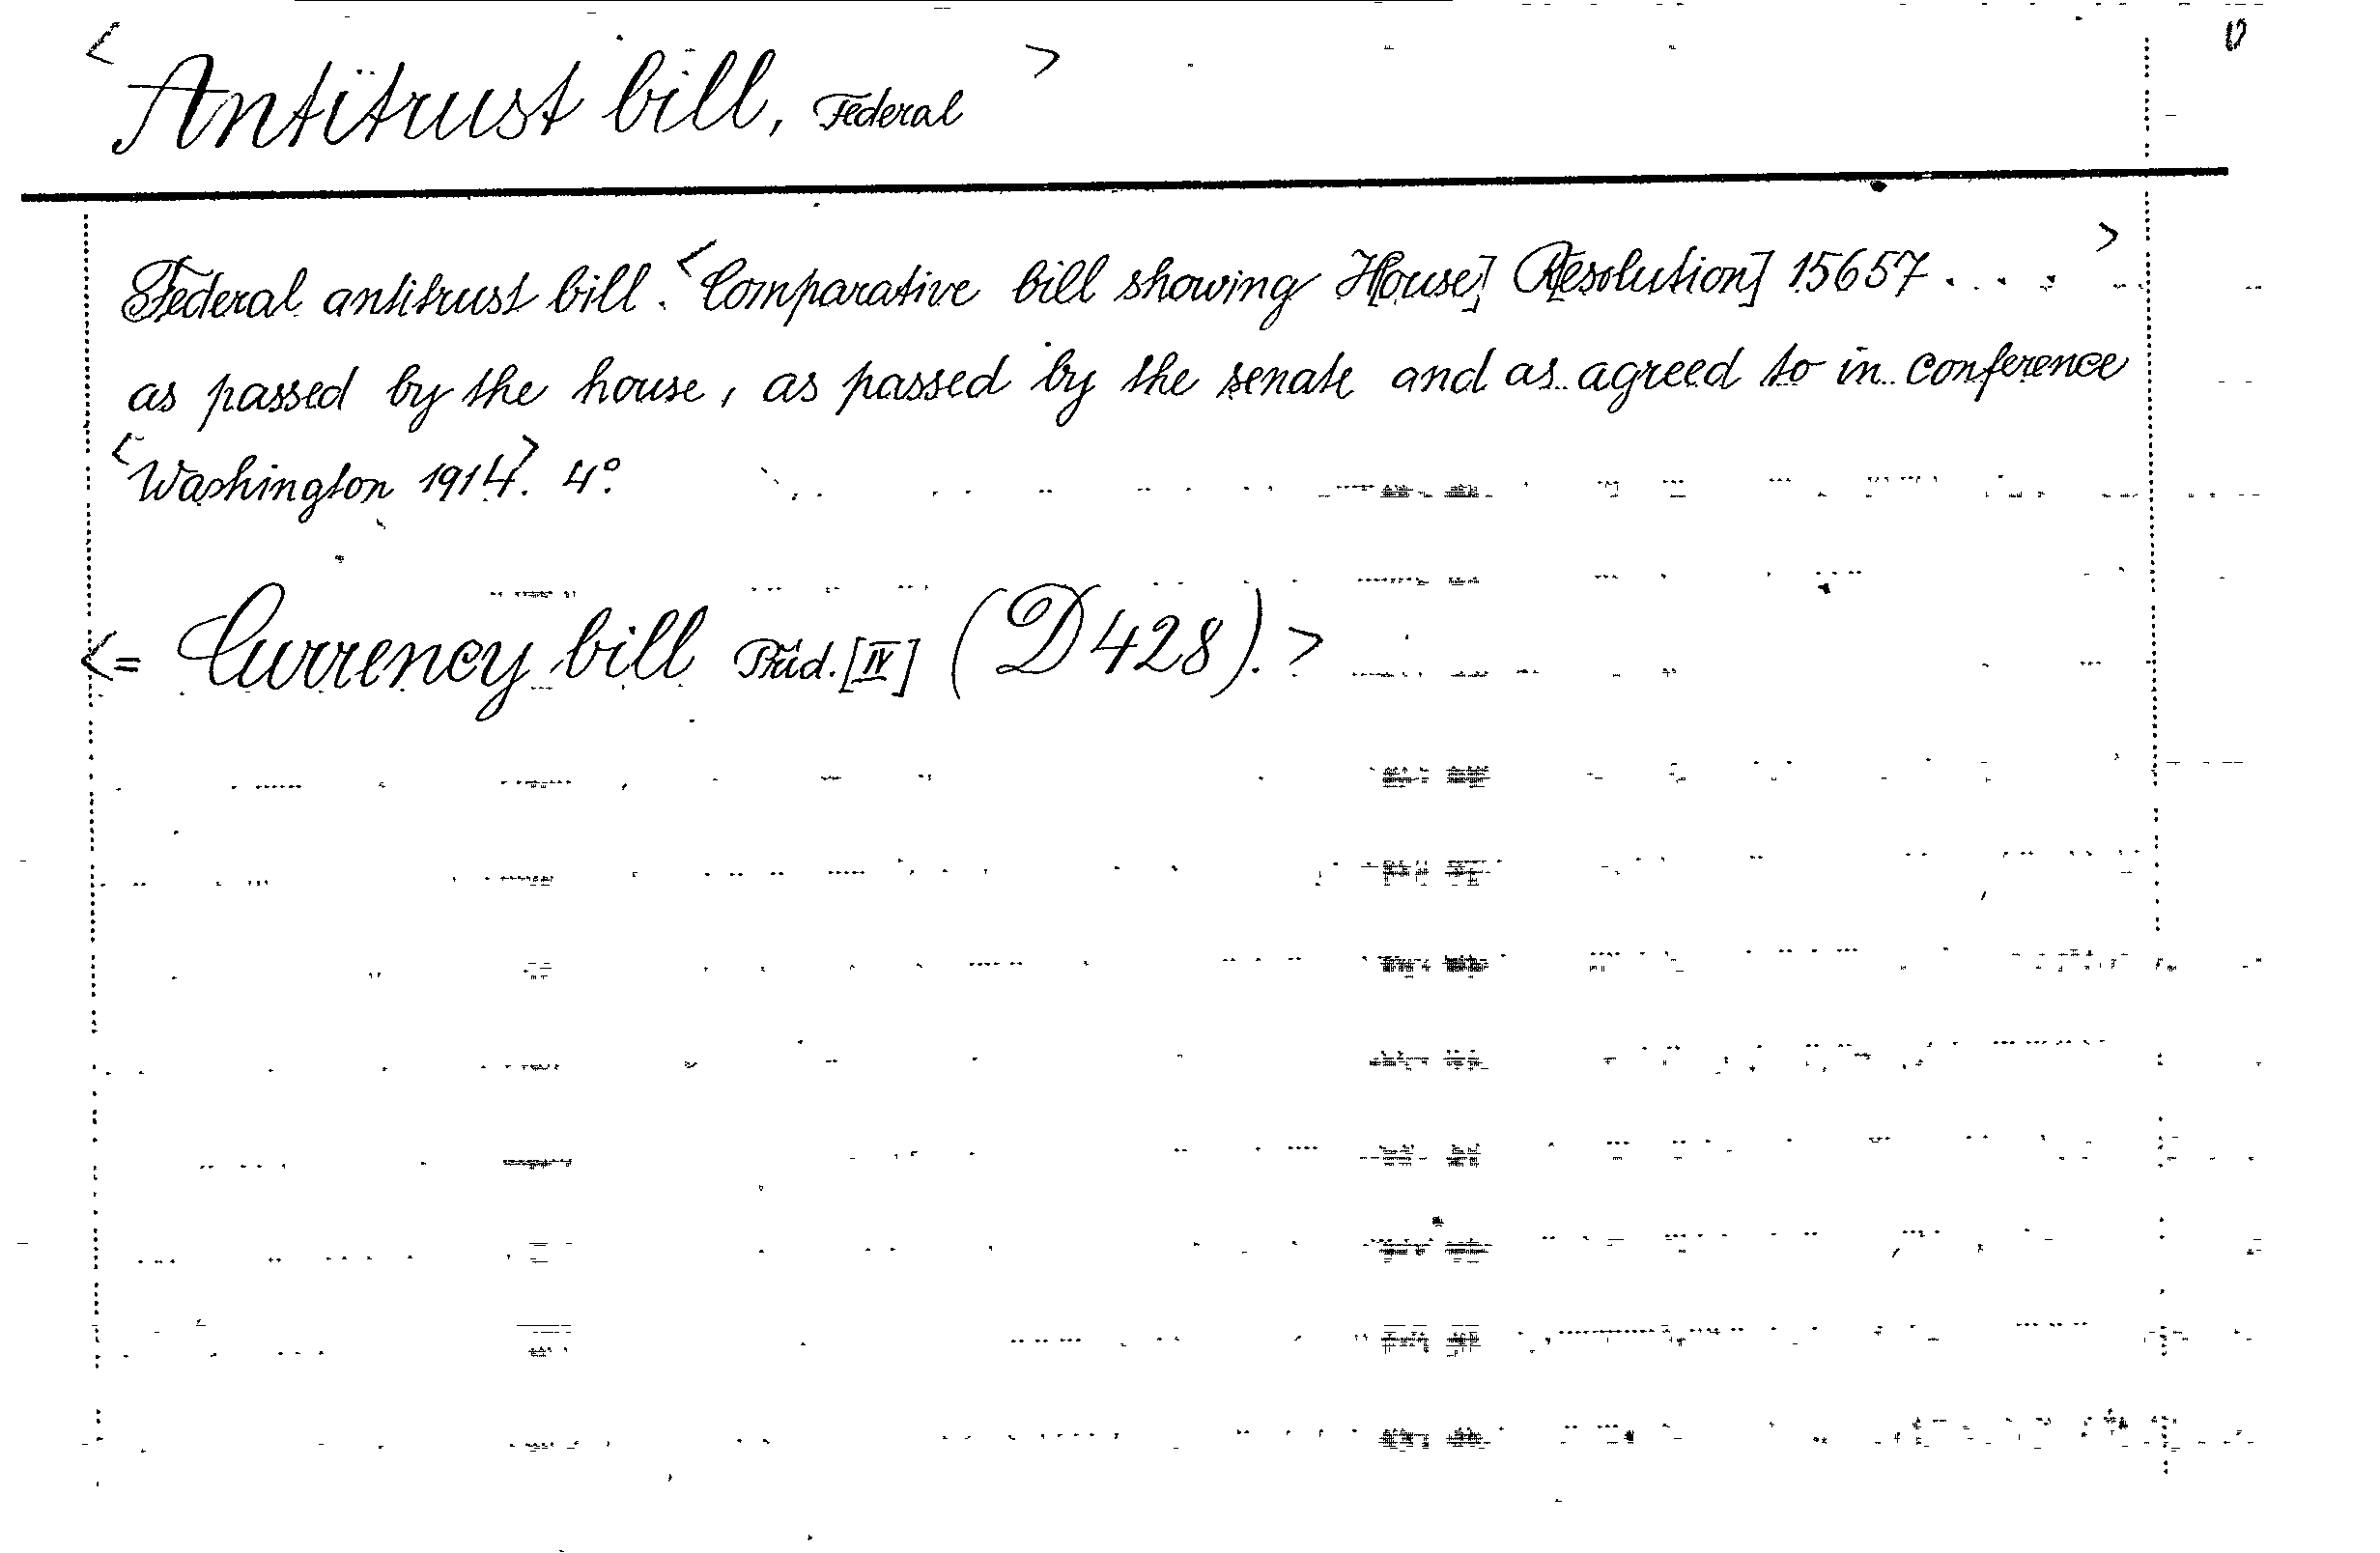 <Antitrust bill, Federal>
Federal antitrust bill. <Comparative bill showing H[ouse] R[esolution] 15657 . . . .>
as passed by the house, as passed by the senate and as agreed to in conference
<Washington 1914>. 4°.
<= Currency bill Präd. [IV] (D 428).>